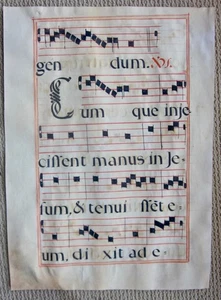 gen dum. XVI.
Cum que inje
cissent manus in Je
sum, & tenuissēt e
um, dixit ad e